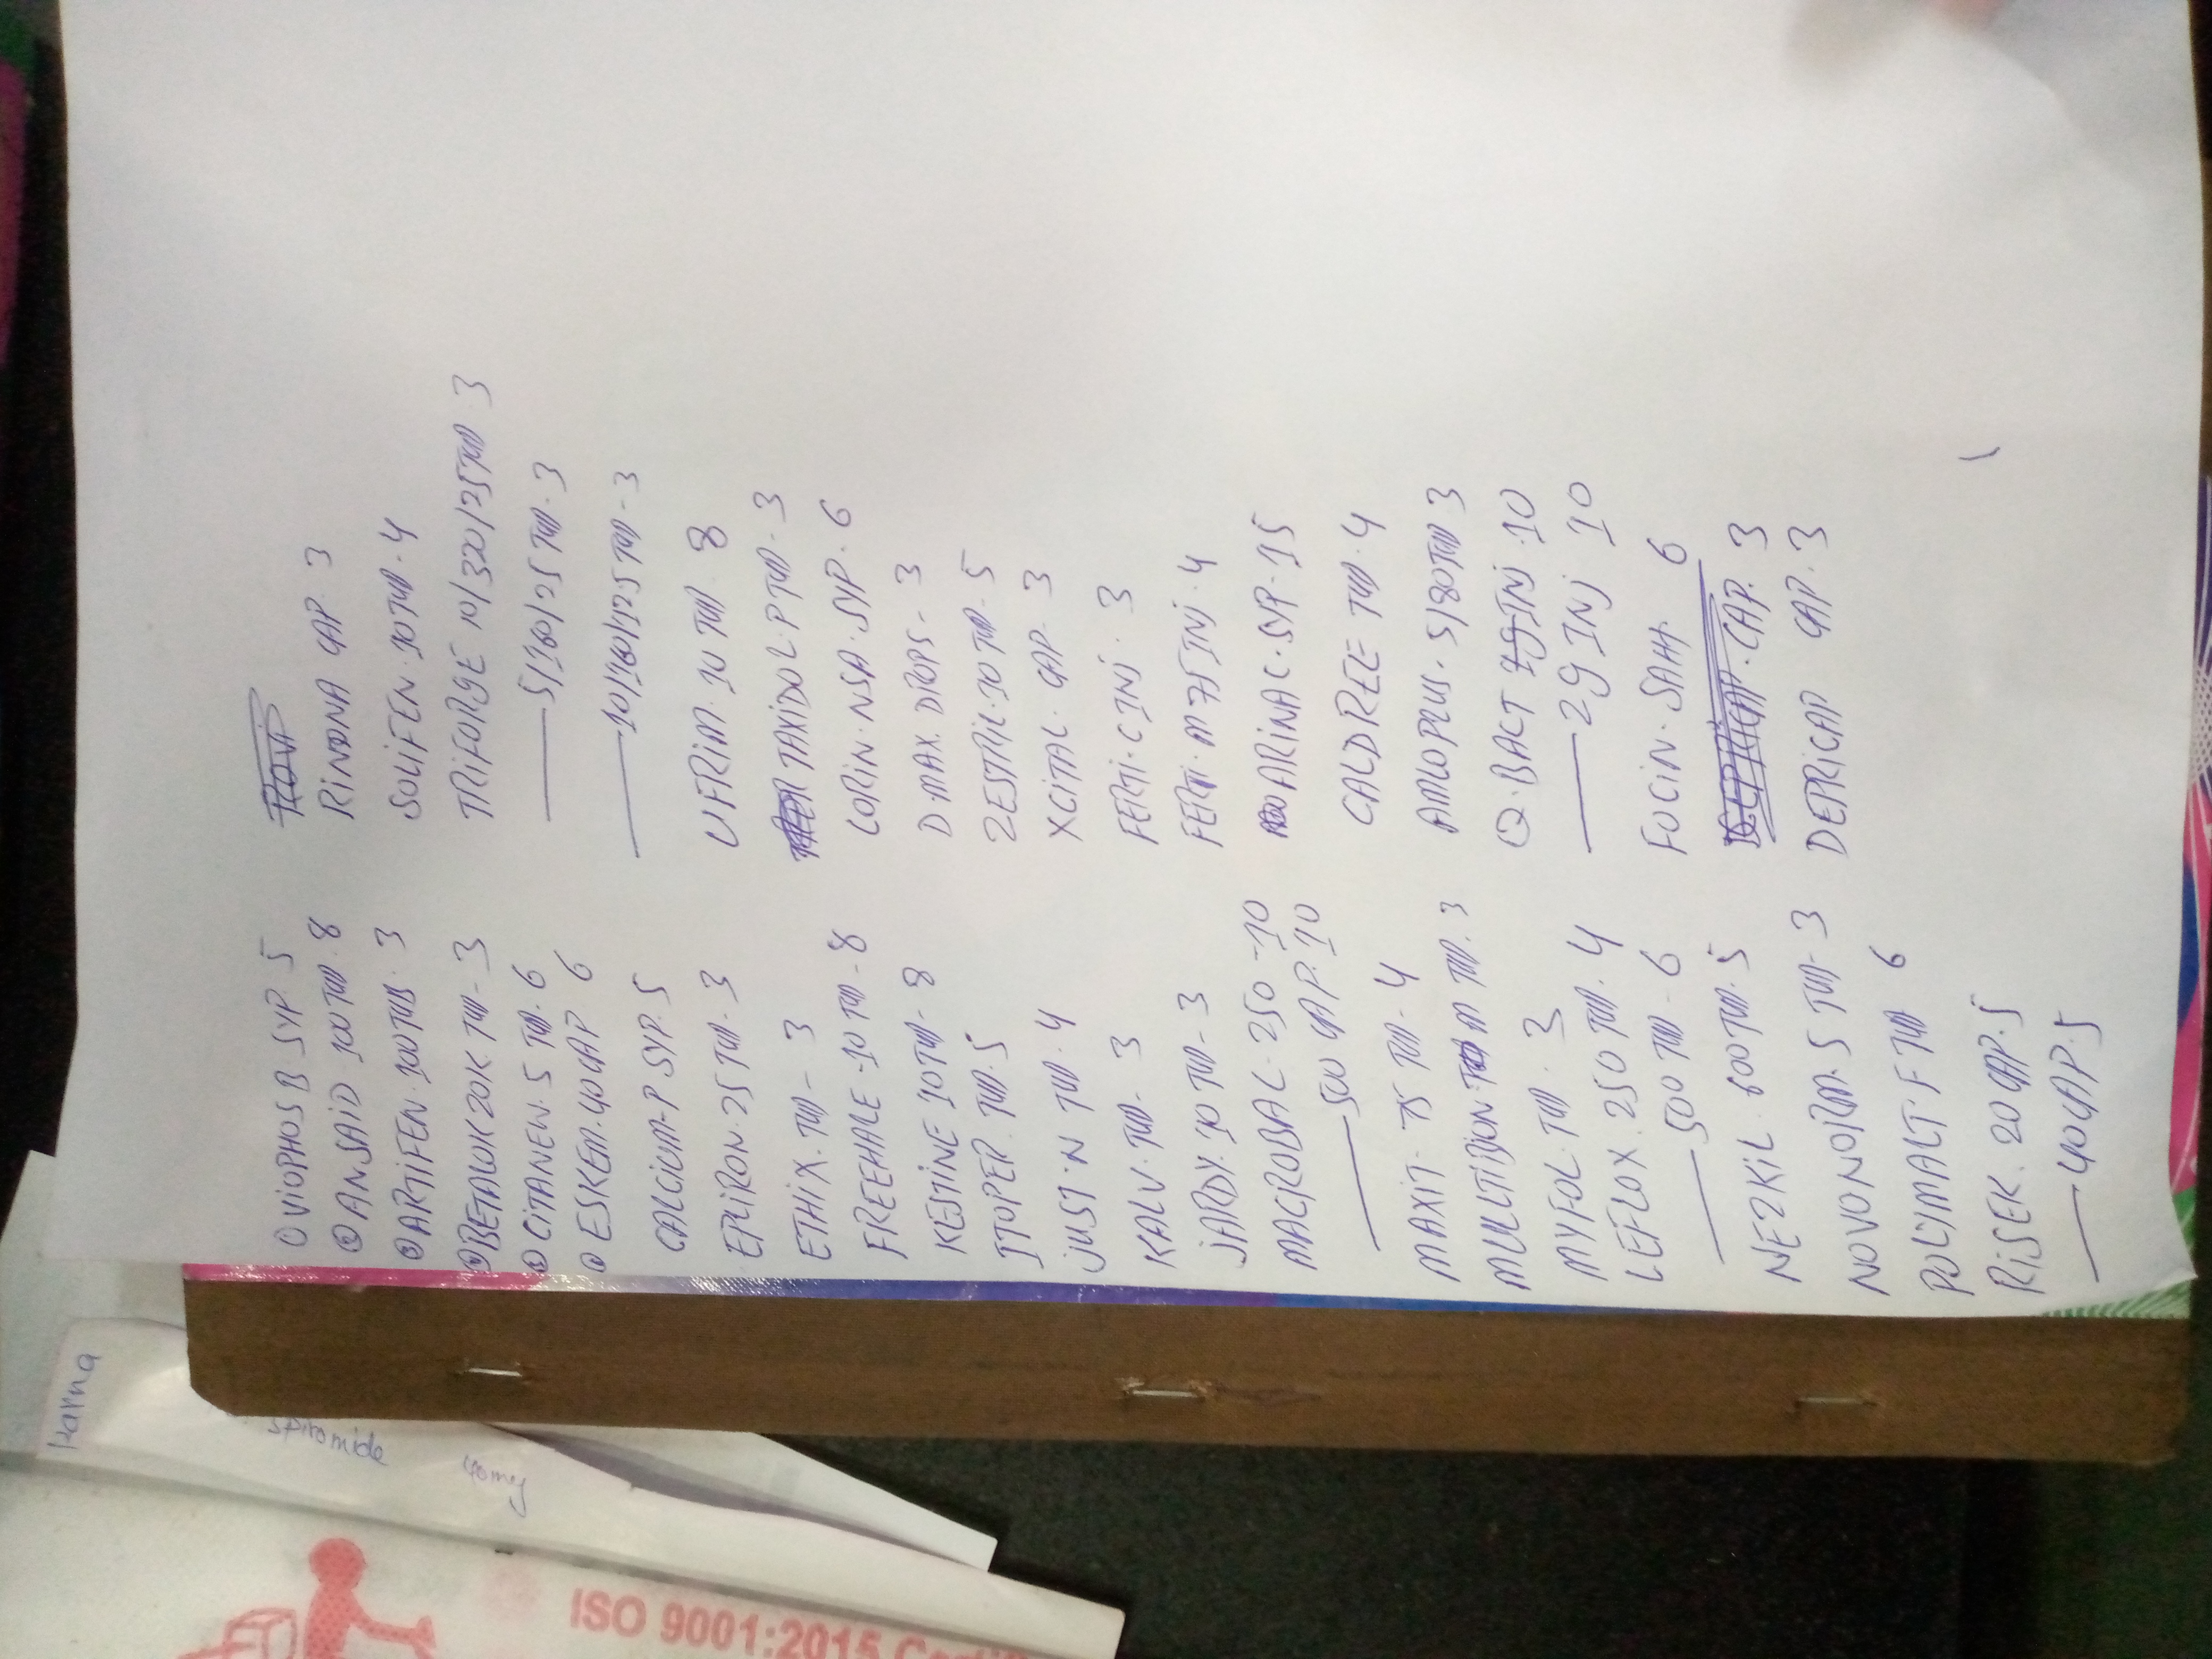 ① VIOPHOS B SYP. 5
② ANSAID 100 TAB. 8
③ ARTIFEN. 100 TAB. 3
④ BETALOK 20K TAB - 3
⑤ CITANEW. 5 TAB. 6
⑥ ESKEM. 40 CAP 6
CALCIUM-P SYP. 5
EPLIRON. 25 TAB. 3
ETHIX. TAB - 3
FREEHALE - 10 TAB - 8
KESTINE 10 TAB - 8
ITOPER. TAB. 5
JUST. N TAB. 4
KALV. TAB - 3
JARDY. 10 TAB - 3
MACROBAC. 250 - 10
—— 500 CAP. 10
MAXIT. 75 TAB - 4
MULTIBION. M TAB. 3
MYFOL. TAB. 3
LEFLOX. 250 TAB. 4
—— 500 TAB - 6
NEZKIL. 600 TAB. 5
NOVONORM. 5 TAB - 3
POLYMALT. F TAB 6
RISEK. 20 CAP. 5
—— 40 CAP. 5
RINDONA CAP. 3
SOLIFEN. 10 TAB. 4
TRIFORGE 10/320/25 TAB. 3
—— 5/160/25 TAB. 3
—— 10/160/25 TAB - 3
UFRIM. 10 TAB. 8
TAXIDOL. P TAB - 3
CORIN. NSA. SYP. 6
D. MAX. DROPS - 3
ZESTRIL. 10 TAB. 5
XCITAL. CAP. 3
FERTI. C INJ. 3
FERTI. M 75 INJ. 4
ARINAC. SYP. 15
CALDREE TAB. 4
AMLOPLUS. 5/80 TAB 3
Q. BACT 1g INJ. 10
—— 2g INJ 10
FOCIN. SAH. 6
CAP. 3
DEPRICAP CAP. 3
Karna
spiromide
40mg
ISO 9001:2015